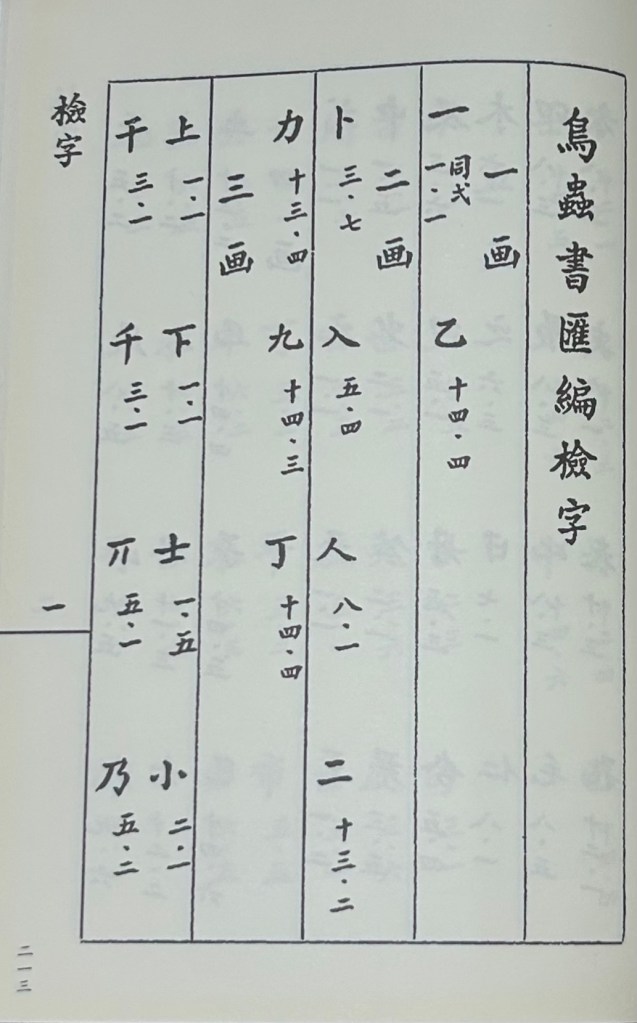 鳥蟲書匯編檢字
一画
一 同弌 一·一 乙 十四·四
二画
卜 三·七 入 五·四 人 八·一 二 十三·二
力 十三·四 九 十四·三 丁 十四·四
三画
上 一·一 下 一·一 士 一·五 小 二·一
干 三·一 千 三·一 丌 五·一 乃 五·二
檢字 一
二一三